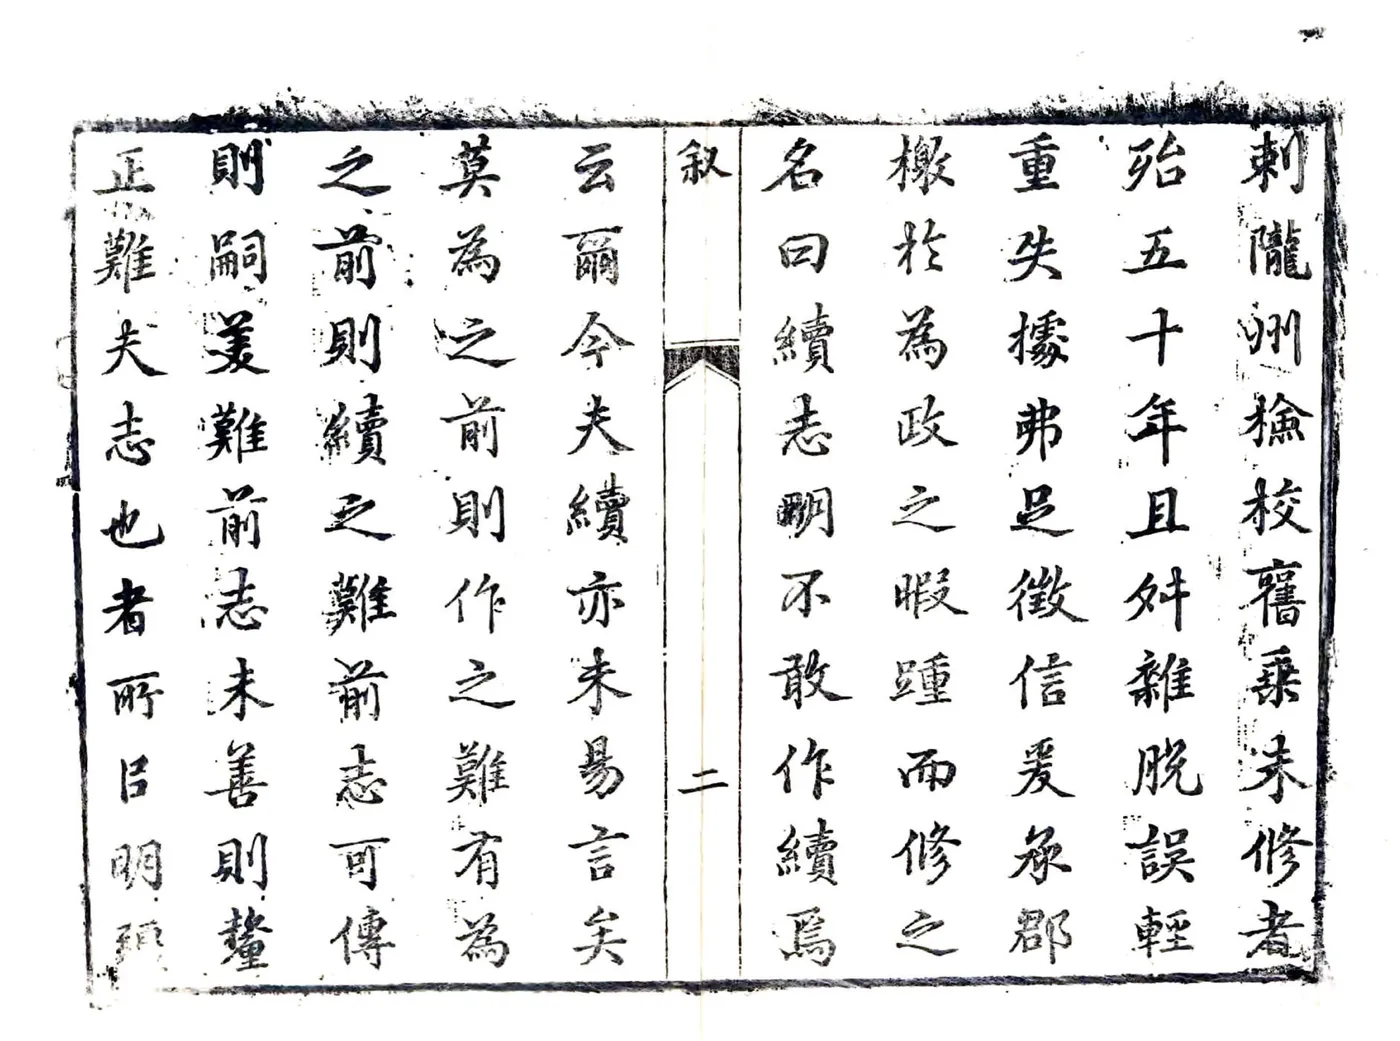 刺隴州檢校舊乗未修者
殆五十年且舛雜脫誤輕
重失據弗足徵信爰承郡
檄於為政之暇踵而修之
名曰續志明不敢作續焉
叙
二
云爾今夫續亦未易言矣
莫為之前則作之難有為
之前則續之難前志可傳
則嗣美難前志未善則釐
正難夫志也者所㠯明